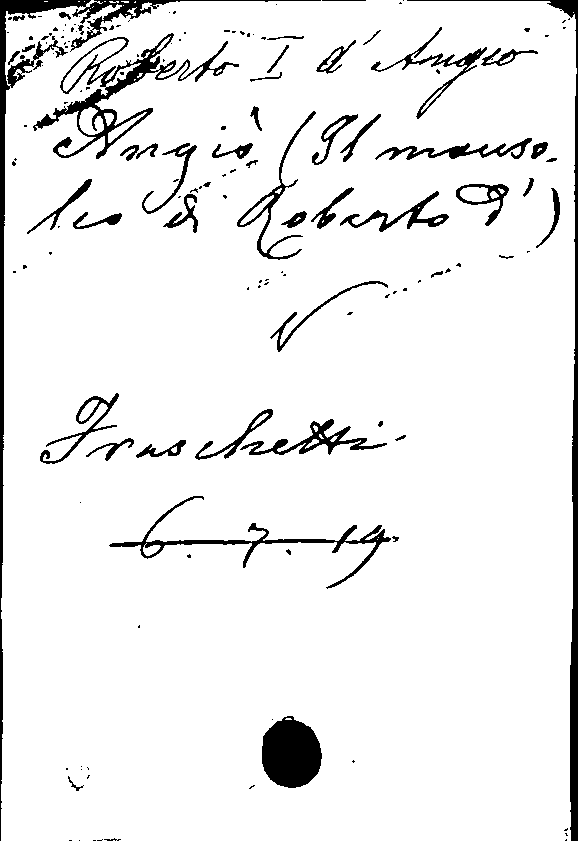 Roberto I d' Angio
Angiò (Il mauso-
leo di Roberto d')
V.
Fraschetti
6. 7. 19